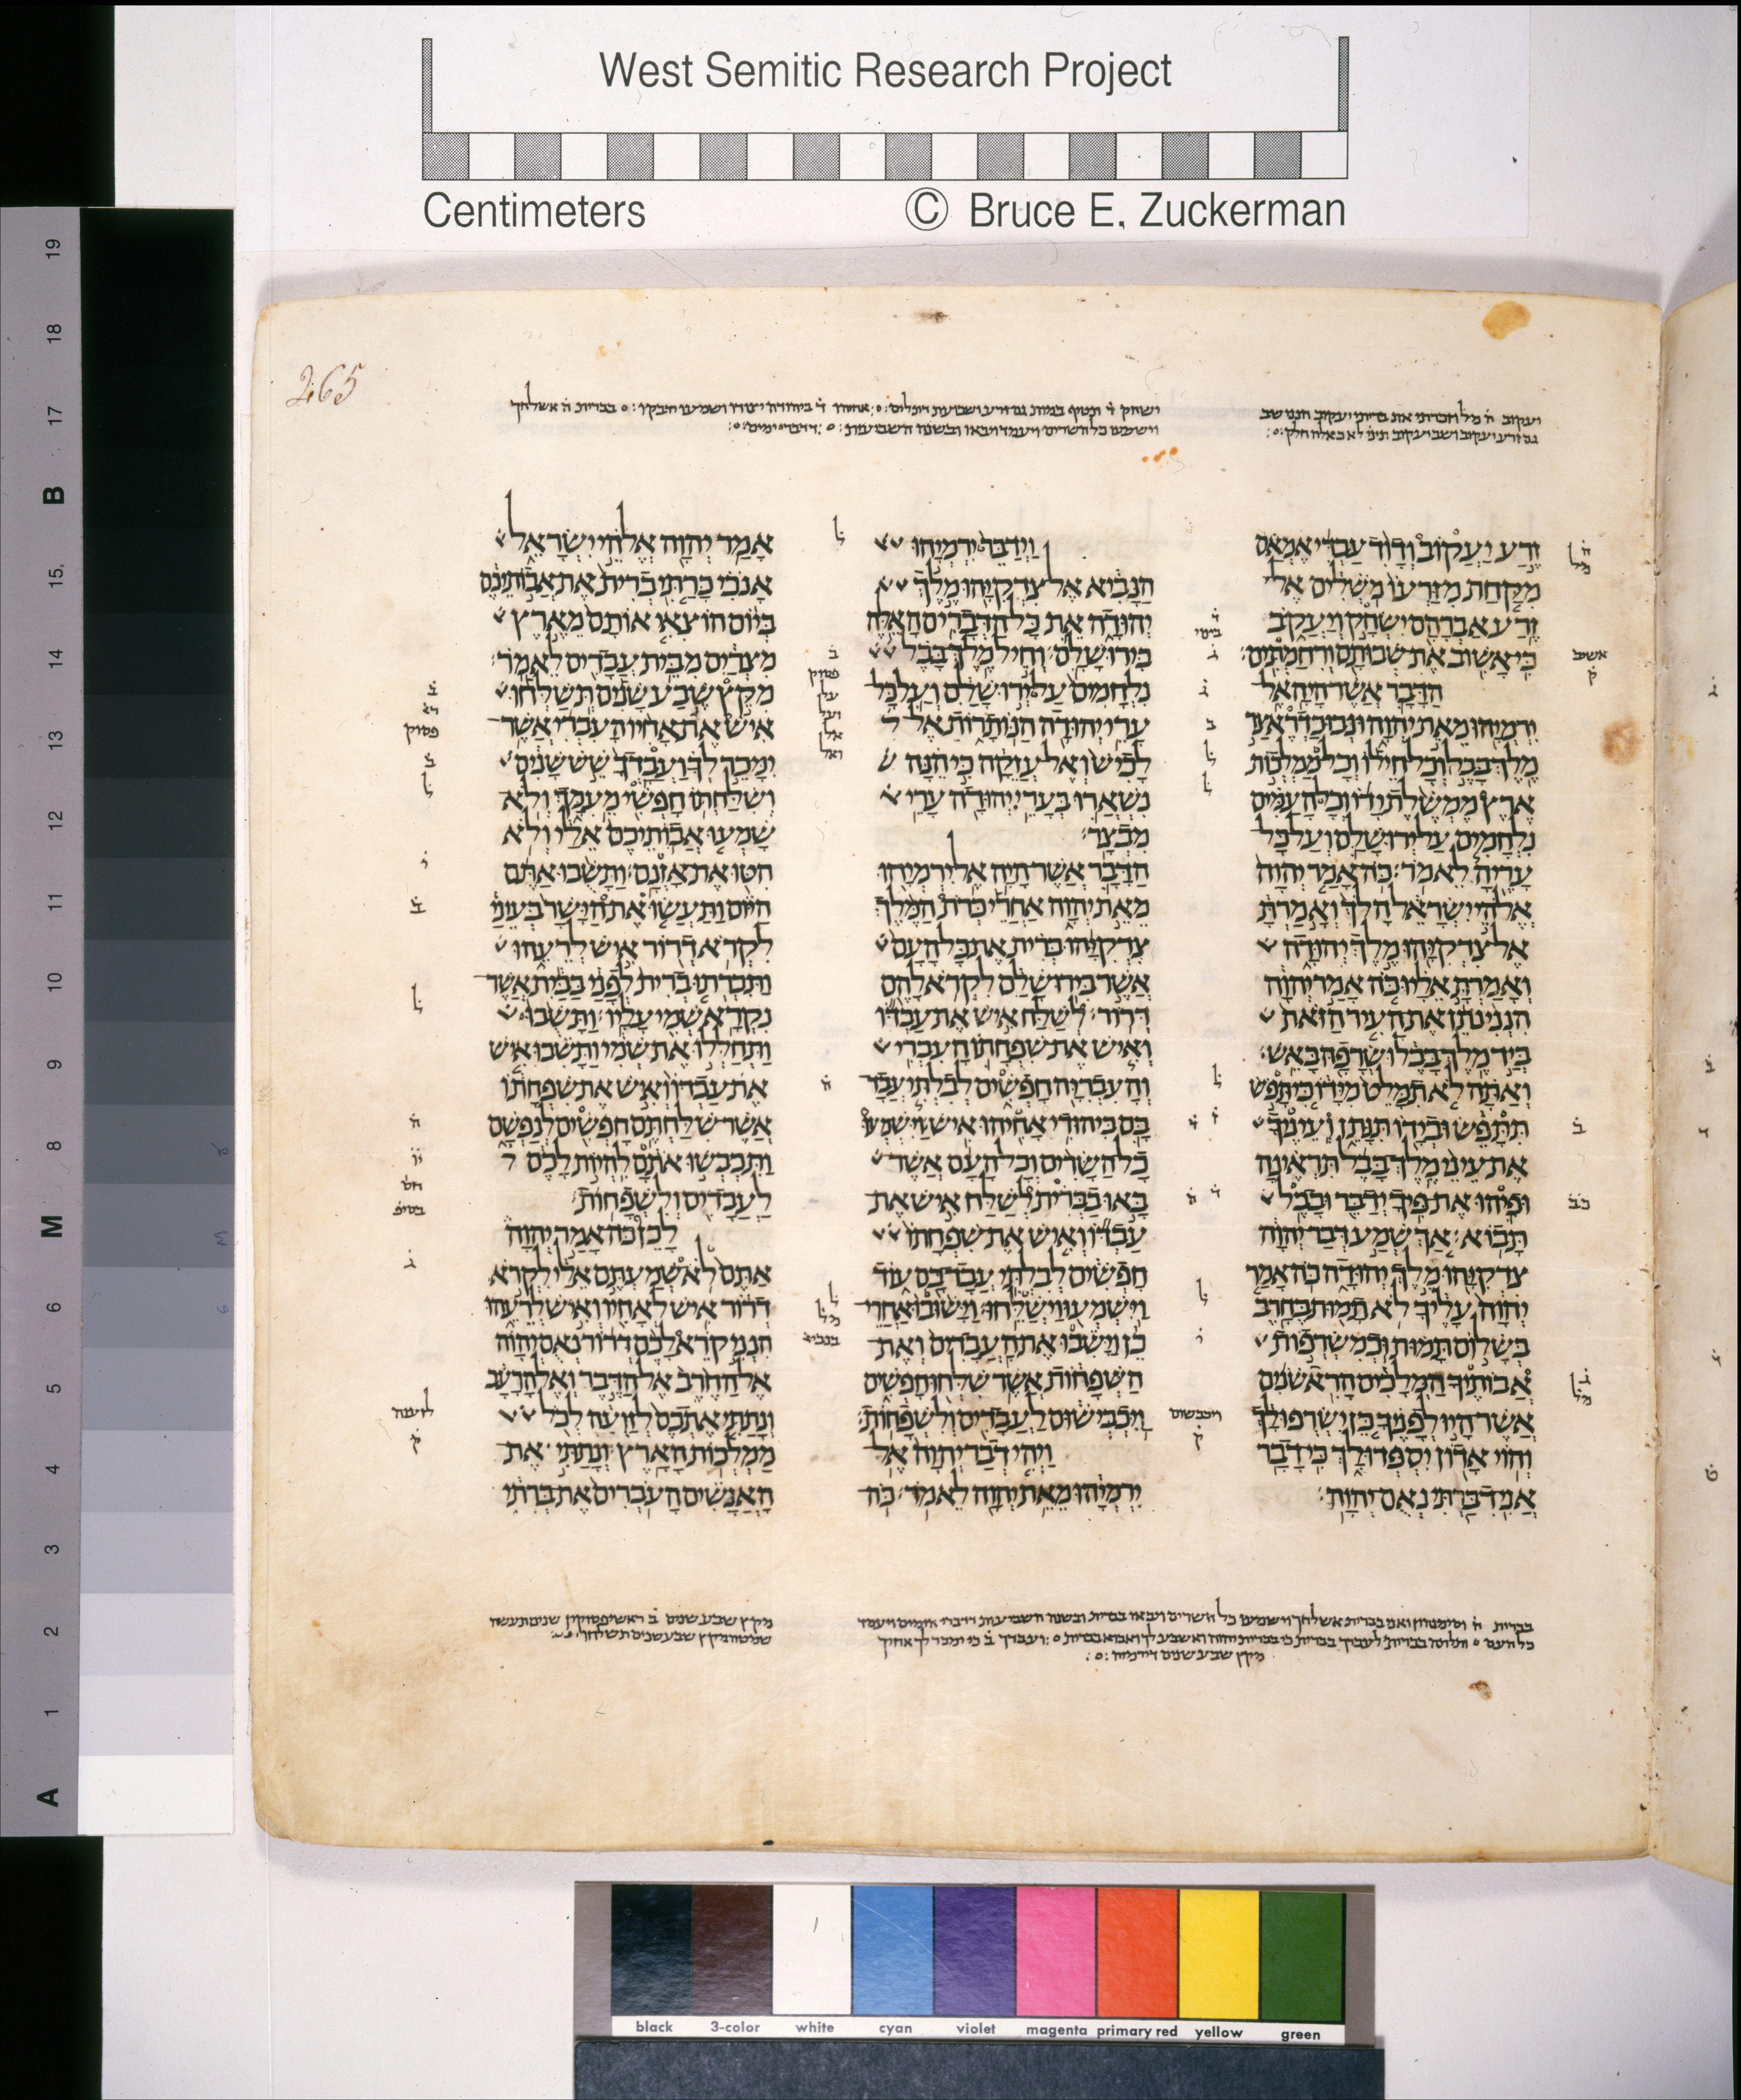 West Semitic Research Project
Centimeters © Bruce E. Zuckerman
265
זֶרַע יַעֲקוֹב וְדָוִד עַבְדִּי אֶמְאַס
מִקַּחַת מִזַּרְעוֹ מֹשְׁלִים אֶל
זֶרַע אַבְרָהָם יִשְׂחָק וְיַעֲקֹב
כִּי אָשׁוּב אֶת שְׁבוּתָם וְרִחַמְתִּים׃
הַדָּבָר אֲשֶׁר הָיָה אֶל
יִרְמְיָהוּ מֵאֵת יְהוָה וּנְבוּכַדְרֶאצַּר
מֶלֶךְ בָּבֶל וְכָל חֵילוֹ וְכָל מַמְלְכוֹת
אֶרֶץ מֶמְשֶׁלֶת יָדוֹ וְכָל הָעַמִּים
נִלְחָמִים עַל יְרוּשָׁלִַם וְעַל כָּל
עָרֶיהָ לֵאמֹר׃ כֹּה אָמַר יְהוָה
אֱלֹהֵי יִשְׂרָאֵל הָלֹךְ וְאָמַרְתָּ
אֶל צִדְקִיָּהוּ מֶלֶךְ יְהוּדָה
וְאָמַרְתָּ אֵלָיו כֹּה אָמַר יְהוָה
הִנְנִי נֹתֵן אֶת הָעִיר הַזֹּאת
בְּיַד מֶלֶךְ בָּבֶל וּשְׂרָפָהּ בָּאֵשׁ׃
וְאַתָּה לֹא תִמָּלֵט מִיָּדוֹ כִּי תָּפֹשׂ
תִּתָּפֵשׂ וּבְיָדוֹ תִּנָּתֵן וְעֵינֶיךָ
אֶת עֵינֵי מֶלֶךְ בָּבֶל תִּרְאֶינָה
וּפִיהוּ אֶת פִּיךָ יְדַבֵּר וּבָבֶל
תָּבוֹא׃ אַךְ שְׁמַע דְּבַר יְהוָה
צִדְקִיָּהוּ מֶלֶךְ יְהוּדָה כֹּה אָמַר
יְהוָה עָלֶיךָ לֹא תָמוּת בֶּחָרֶב׃
בְּשָׁלוֹם תָּמוּת וּכְמִשְׂרְפוֹת
אֲבוֹתֶיךָ הַמְּלָכִים הָרִאשֹׁנִים
אֲשֶׁר הָיוּ לְפָנֶיךָ כֵּן יִשְׂרְפוּ לָךְ
וְהוֹי אָדוֹן יִסְפְּדוּ לָךְ כִּי דָבָר
אֲנִי דִבַּרְתִּי נְאֻם יְהוָה׃
וַיְדַבֵּר יִרְמְיָהוּ
הַנָּבִיא אֶל צִדְקִיָּהוּ מֶלֶךְ
יְהוּדָה אֵת כָּל הַדְּבָרִים הָאֵלֶּה
בִּירוּשָׁלִָם׃ וְחֵיל מֶלֶךְ בָּבֶל
נִלְחָמִים עַל יְרוּשָׁלִַם וְעַל כָּל
עָרֵי יְהוּדָה הַנּוֹתָרוֹת אֶל
לָכִישׁ וְאֶל עֲזֵקָה כִּי הֵנָּה
נִשְׁאֲרוּ בְּעָרֵי יְהוּדָה עָרֵי
מִבְצָר׃
הַדָּבָר אֲשֶׁר הָיָה אֶל יִרְמְיָהוּ
מֵאֵת יְהוָה אַחֲרֵי כְּרֹת הַמֶּלֶךְ
צִדְקִיָּהוּ בְּרִית אֶת כָּל הָעָם
אֲשֶׁר בִּירוּשָׁלִַם לִקְרֹא לָהֶם
דְּרוֹר׃ לְשַׁלַּח אִישׁ אֶת עַבְדּוֹ
וְאִישׁ אֶת שִׁפְחָתוֹ הָעִבְרִי
וְהָעִבְרִיָּה חָפְשִׁים לְבִלְתִּי עֲבָד
בָּם בִּיהוּדִי אָחִיהוּ אִישׁ׃ וַיִּשְׁמְעוּ
כָל הַשָּׂרִים וְכָל הָעָם אֲשֶׁר
בָּאוּ בַבְּרִית לְשַׁלַּח אִישׁ אֶת
עַבְדּוֹ וְאִישׁ אֶת שִׁפְחָתוֹ
חָפְשִׁים לְבִלְתִּי עֲבָד בָּם עוֹד
וַיִּשְׁמְעוּ וַיְשַׁלֵּחוּ׃ וַיָּשׁוּבוּ אַחֲרֵי
כֵן וַיָּשִׁבוּ אֶת הָעֲבָדִים וְאֶת
הַשְּׁפָחוֹת אֲשֶׁר שִׁלְּחוּ חָפְשִׁים
וַיִּכְבְּישׁוּם לַעֲבָדִים וְלִשְׁפָחוֹת׃
וַיְהִי דְבַר יְהוָה אֶל
יִרְמְיָהוּ מֵאֵת יְהוָה לֵאמֹר׃ כֹּה
אָמַר יְהוָה אֱלֹהֵי יִשְׂרָאֵל
אָנֹכִי כָּרַתִּי בְרִית אֶת אֲבוֹתֵיכֶם
בְּיוֹם הוֹצִאִי אוֹתָם מֵאֶרֶץ
מִצְרַיִם מִבֵּית עֲבָדִים לֵאמֹר׃
מִקֵּץ שֶׁבַע שָׁנִים תְּשַׁלְּחוּ
אִישׁ אֶת אָחִיו הָעִבְרִי אֲשֶׁר
יִמָּכֵר לְךָ וַעֲבָדְךָ שֵׁשׁ שָׁנִים
וְשִׁלַּחְתּוֹ חָפְשִׁי מֵעִמָּךְ וְלֹא
שָׁמְעוּ אֲבוֹתֵיכֶם אֵלַי וְלֹא
הִטּוּ אֶת אָזְנָם׃ וַתָּשֻׁבוּ אַתֶּם
הַיּוֹם וַתַּעֲשׂוּ אֶת הַיָּשָׁר בְּעֵינַי
לִקְרֹא דְרוֹר אִישׁ לְרֵעֵהוּ
וַתִּכְרְתוּ בְרִית לְפָנַי בַּבַּיִת אֲשֶׁר
נִקְרָא שְׁמִי עָלָיו׃ וַתָּשֻׁבוּ
וַתְּחַלְּלוּ אֶת שְׁמִי וַתָּשִׁבוּ אִישׁ
אֶת עַבְדּוֹ וְאִישׁ אֶת שִׁפְחָתוֹ
אֲשֶׁר שִׁלַּחְתֶּם חָפְשִׁים לְנַפְשָׁם
וַתִּכְבְּשׁוּ אֹתָם לִהְיוֹת לָכֶם
לַעֲבָדִים וְלִשְׁפָחוֹת׃
לָכֵן כֹּה אָמַר יְהוָה
אַתֶּם לֹא שְׁמַעְתֶּם אֵלַי לִקְרֹא
דְרוֹר אִישׁ לְאָחִיו וְאִישׁ לְרֵעֵהוּ
הִנְנִי קֹרֵא לָכֶם דְּרוֹר נְאֻם יְהוָה
אֶל הַחֶרֶב אֶל הַדֶּבֶר וְאֶל הָרָעָב
וְנָתַתִּי אֶתְכֶם לְזַוֲעָה לְכֹל
מַמְלְכוֹת הָאָרֶץ׃ וְנָתַתִּי אֶת
הָאֲנָשִׁים הָעֹבְרִים אֶת בְּרִתִי
black 3-color white cyan violet magenta primary red yellow green